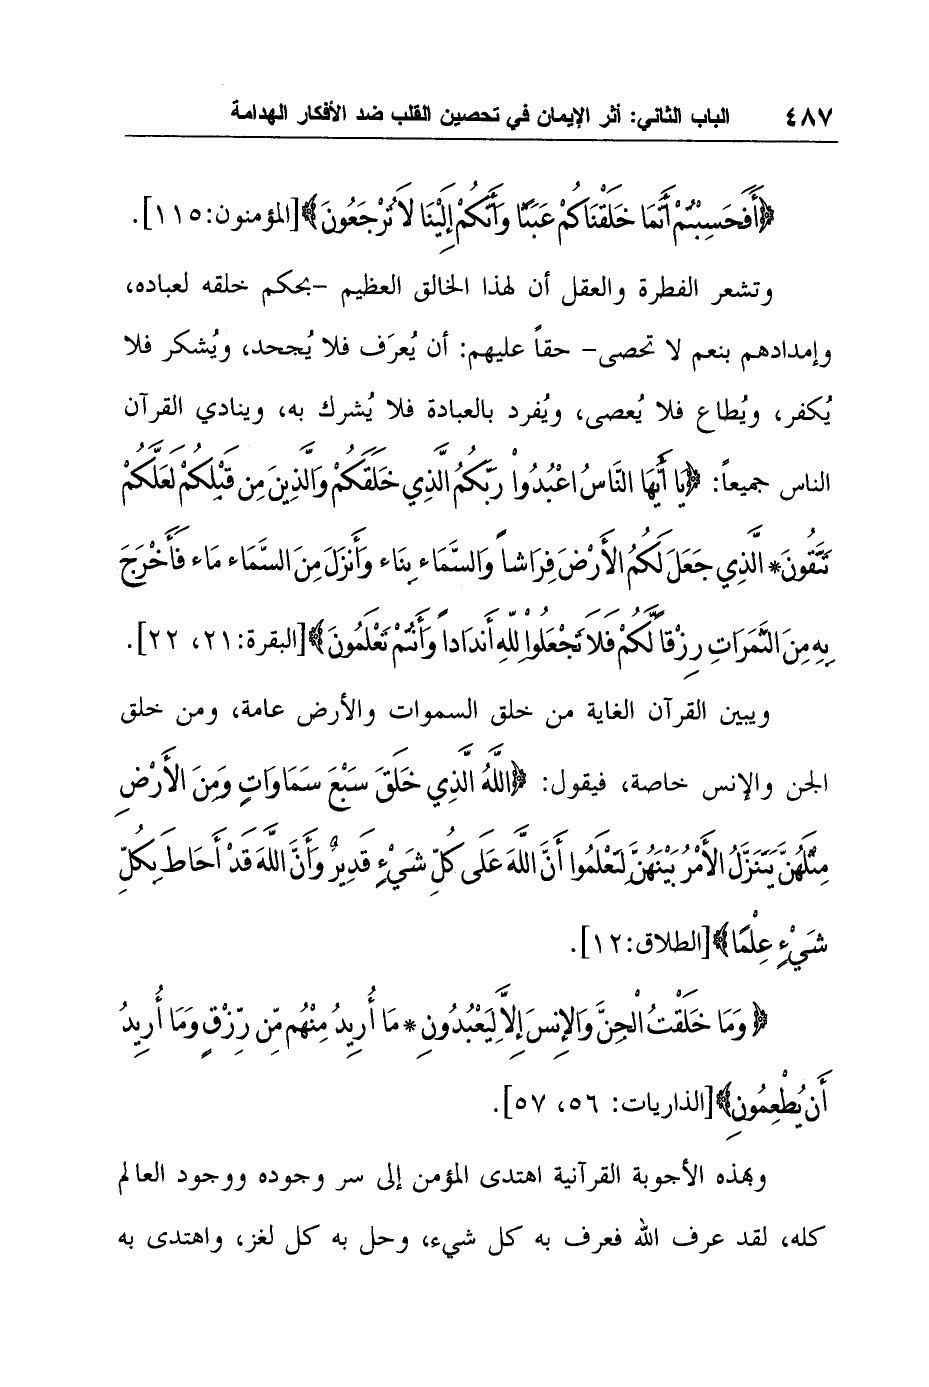 ٤٨٧ الباب الثاني: أثر الإيمان في تحصين القلب ضد الأفكار الهدامة
﴿أَفَحَسِبْتُمْ أَنَّمَا خَلَقْنَاكُمْ عَبَثًا وَأَنَّكُمْ إِلَيْنَا لَا تُرْجَعُونَ﴾[المؤمنون:١١٥].
وتشعر الفطرة والعقل أن لهذا الخالق العظيم -بحكم خلقه لعباده،
وإمدادهم بنعم لا تحصى- حقاً عليهم: أن يُعرَف فلا يُجحد، ويُشكر فلا
يُكفر، ويُطاع فلا يُعصى، ويُفرد بالعبادة فلا يُشرك به، وينادي القرآن
الناس جميعاً: ﴿يَا أَيُّهَا النَّاسُ اعْبُدُواْ رَبَّكُمُ الَّذِي خَلَقَكُمْ وَالَّذِينَ مِن قَبْلِكُمْ لَعَلَّكُمْ
تَتَّقُونَ* الَّذِي جَعَلَ لَكُمُ الأَرْضَ فِرَاشاً وَالسَّمَاء بِنَاء وَأَنزَلَ مِنَ السَّمَاء مَاء فَأَخْرَجَ
بِهِ مِنَ الثَّمَرَاتِ رِزْقاً لَّكُمْ فَلاَ تَجْعَلُواْ لِلّهِ أَندَاداً وَأَنتُمْ تَعْلَمُونَ﴾[البقرة:٢١، ٢٢].
ويبين القرآن الغاية من خلق السموات والأرض عامة، ومن خلق
الجن والإنس خاصة، فيقول: ﴿اللَّهُ الَّذِي خَلَقَ سَبْعَ سَمَاوَاتٍ وَمِنَ الْأَرْضِ
مِثْلَهُنَّ يَتَنَزَّلُ الْأَمْرُ بَيْنَهُنَّ لِتَعْلَمُوا أَنَّ اللَّهَ عَلَى كُلِّ شَيْءٍ قَدِيرٌ وَأَنَّ اللَّهَ قَدْ أَحَاطَ بِكُلِّ
شَيْءٍ عِلْمًا﴾[الطلاق:١٢].
﴿وَمَا خَلَقْتُ الْجِنَّ وَالإِنسَ إِلاَّ لِيَعْبُدُونِ* مَا أُرِيدُ مِنْهُم مِّن رِّزْقٍ وَمَا أُرِيدُ
أَن يُطْعِمُونِ﴾[الذاريات: ٥٦، ٥٧].
وبهذه الأجوبة القرآنية اهتدى المؤمن إلى سر وجوده ووجود العالم
كله، لقد عرف الله فعرف به كل شيء، وحل به كل لغز، واهتدى به